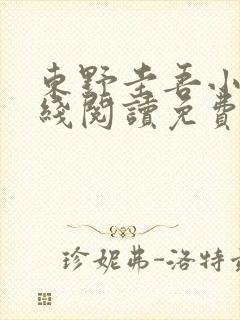 東野圭吾小
綫閱讀免費
珍妮弗-洛特